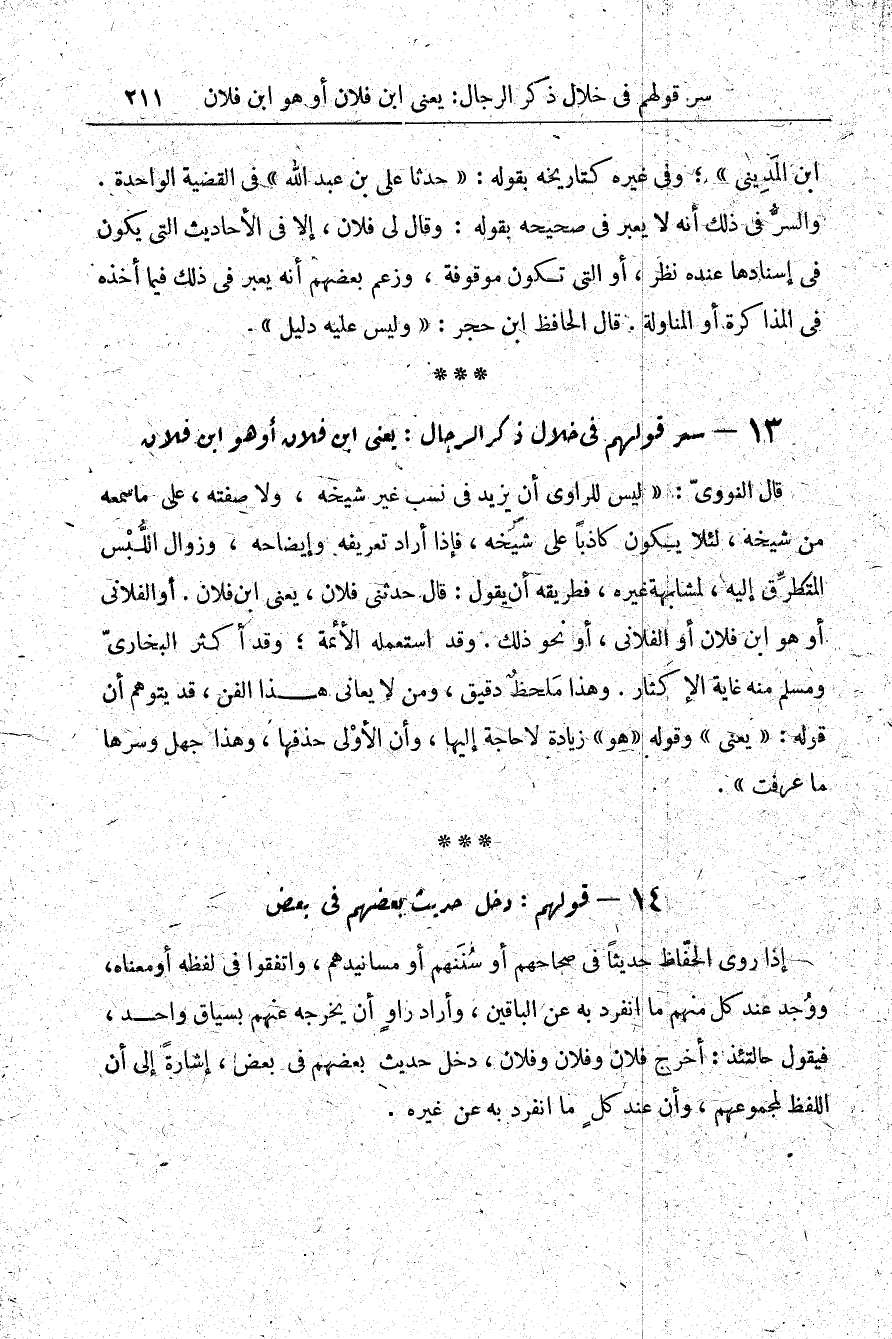 سر قولهم فى خلال ذكر الرجال: يعنى ابن فلان أو هو ابن فلان ٢١١
ابن المَدِينى » ؛ وفى غيره كتاريخه بقوله : « حدثا على بن عبد الله » فى القضية الواحدة .
والسرُّ فى ذلك أنه لا يعبر فى صحيحه بقوله : وقال لى فلان ، إلا فى الأحاديث التى يكون
فى إسنادها عنده نظر ، أو التى تكون موقوفة ، وزعم بعضهم أنه يعبر فى ذلك فيما أخذه
فى المذاكرة أو المناولة . قال الحافظ ابن حجر : « وليس عليه دليل » .
***
١٣ – سر قولهم فى خلال ذكر الرجال : يعنى ابن فلان أو هو ابن فلان
قال النووىّ : « ليس للراوى أن يزيد فى نسب غير شيخه ، ولا صفته ، على ماسمعه
من شيخه ، لئلا يكون كاذباً على شيخه ، فإذا أراد تعريفه وإيضاحه ، وزوال اللُّبْس
المتطرِّق إليه ، لمشابهة غيره ، فطريقه أن يقول : قال حدثنى فلان ، يعنى ابن فلان . أو الفلانى
أو هو ابن فلان أو الفلانى ، أو نحو ذلك . وقد استعمله الأئمة ؛ وقد أكثر البخارىّ
ومسلم منه غاية الإكثار . وهذا مَلحظٌ دقيق ، ومن لا يعانى هـذا الفن ، قد يتوهم أن
قوله : « يعنى » وقوله « هو » زيادة لاحاجة إليها ، وأن الأوْلى حذفها ، وهذا جهل وسرها
ما عرفت » .
***
١٤ – قولهم : دخل حديث بعضهم فى بعض
إذا روى الحفّاظ حديثاً فى صحاحهم أو سُنَنهم أو مسانيدهم ، واتفقوا فى لفظه أو معناه ،
ووُجد عند كل منهم ما انفرد به عن الباقين ، وأراد راوٍ أن يخرجه عنهم بسياق واحـد ،
فيقول حالتئذ : أخرج فلان وفلان وفلان ، دخل حديث بعضهم فى بعض ، إشارةً إلى أن
اللفظ لمجموعهم ، وأن عند كلٍ ما انفرد به عن غيره .